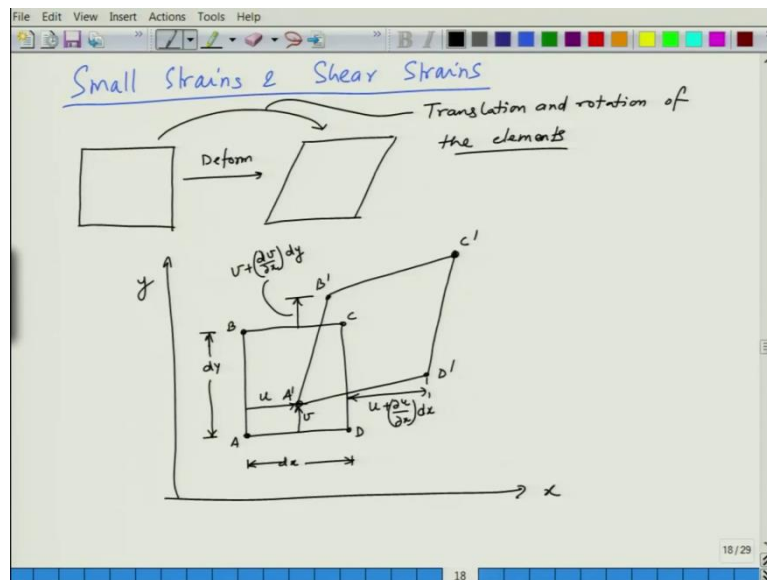 File Edit View Insert Actions Tools Help
B I
Small Strains & Shear Strains
Translation and rotation of
the elements
Deform
v+(∂v/∂x)dy
C'
y
B'
B
C
dy
D'
u A'
u+(∂u/∂x)dx
v
A
D
dx
x
18/29
18